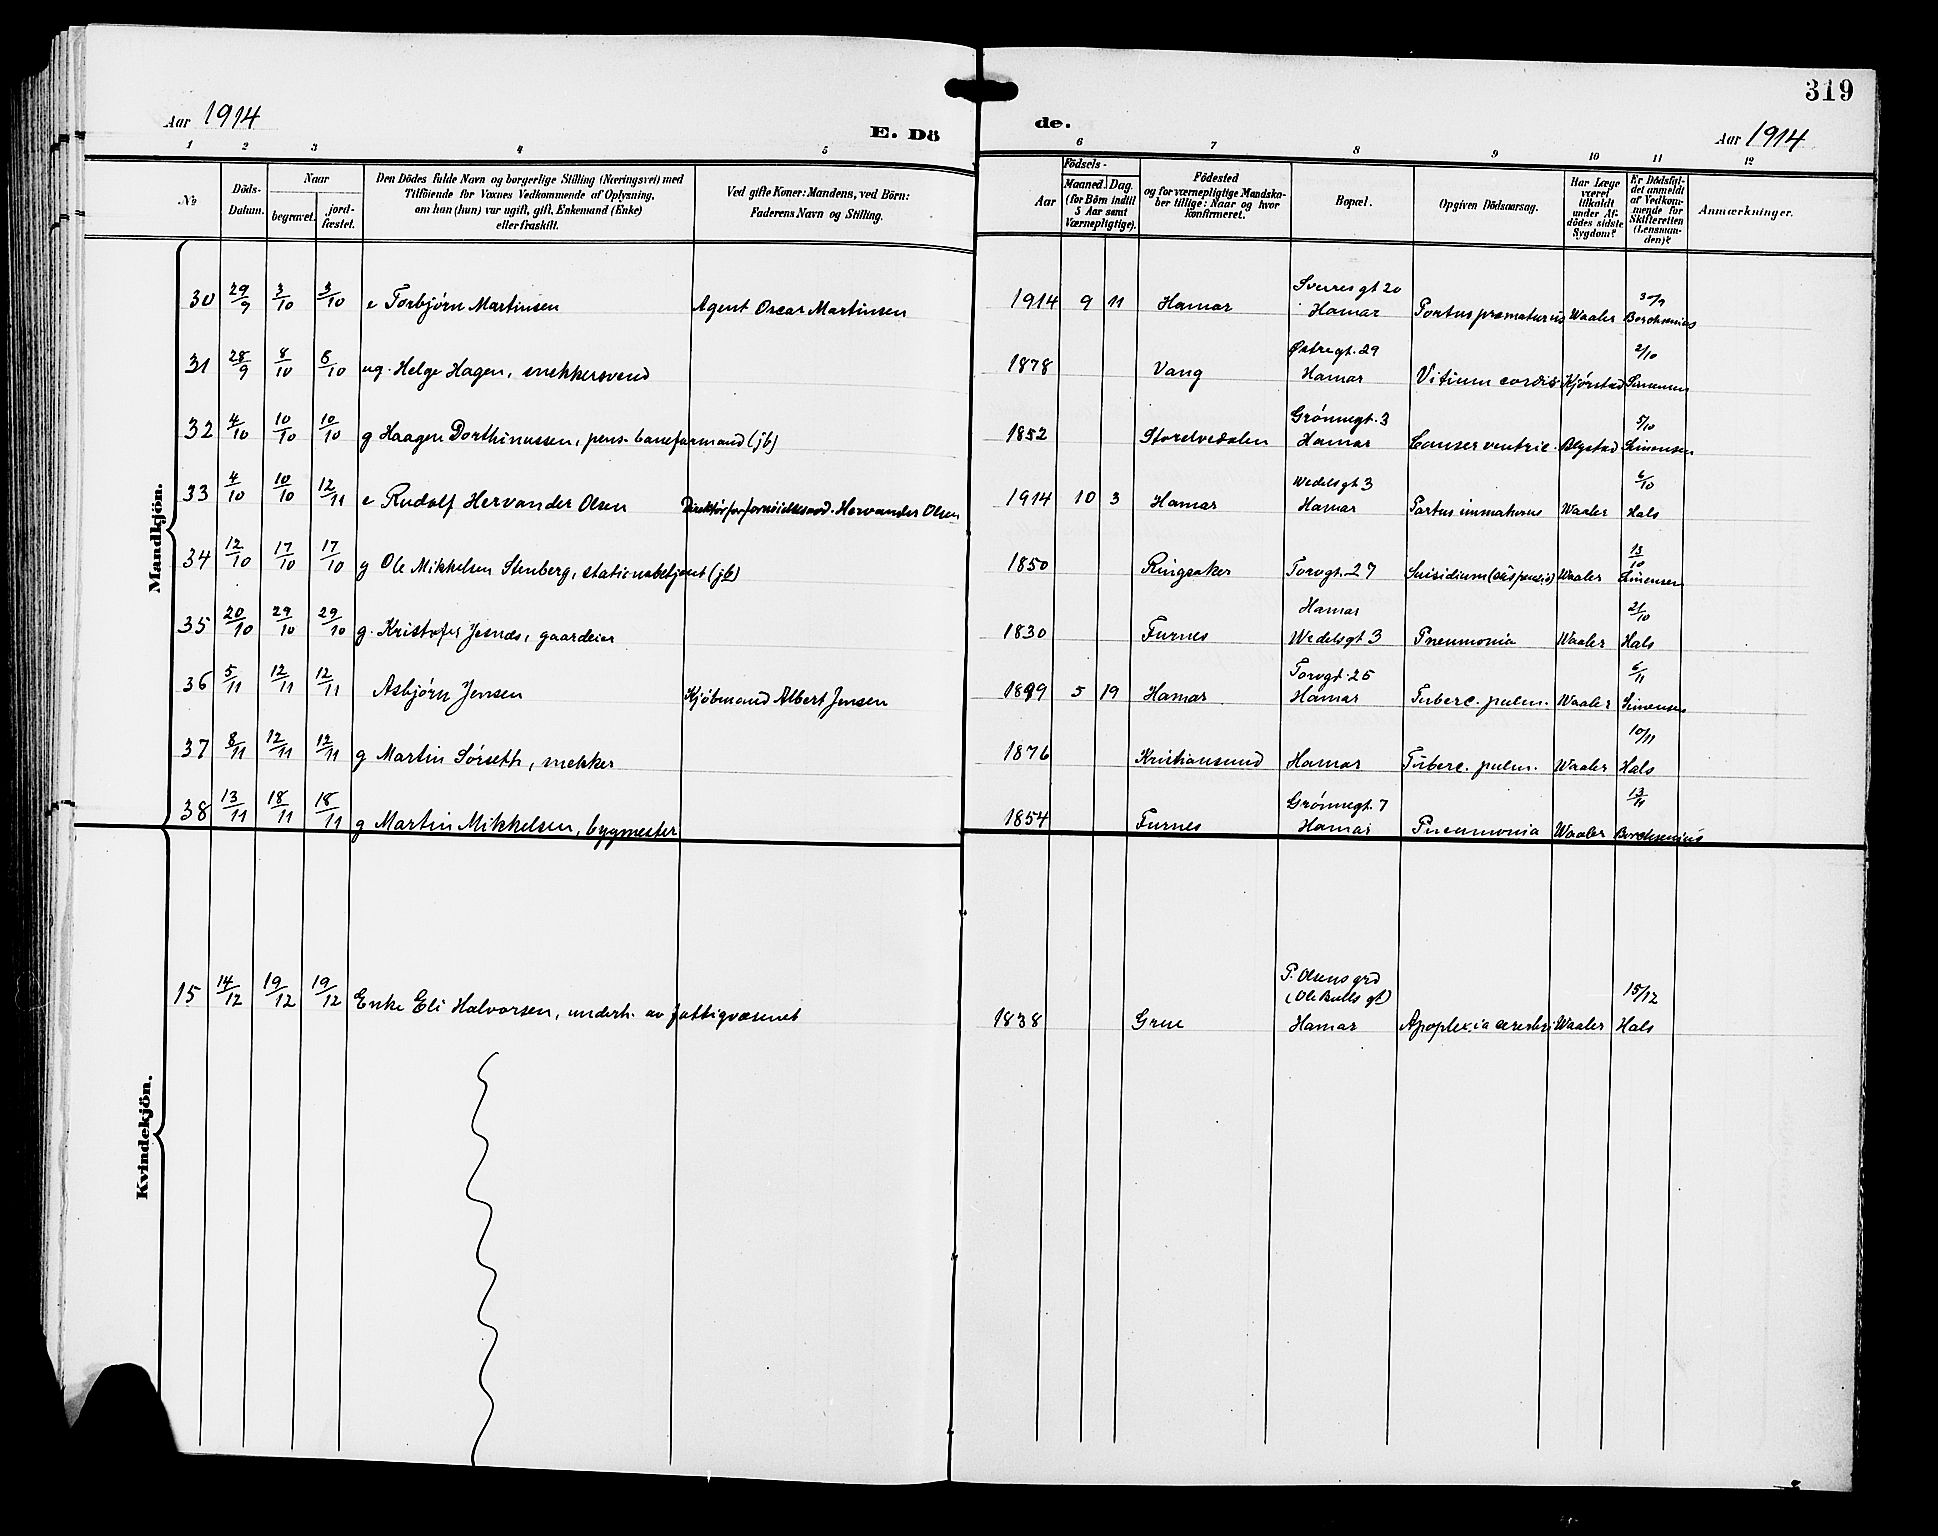 319
Aar 1914
E. Dö
de.
Aar 1914
1 2 3 4 5 6 7 8 9 10 11 12
No
Döds-
Datum.
Naar
begravet.
jord-
fæstet.
Den Dödes fulde Navn og borgerlige Stilling (Næringsvei) med
Tilföiende for Voxnes Vedkommende af Oplysning,
om han (hun) var ugift, gift, Enkemand (Enke)
eller fraskilt.
Ved gifte Koner: Mandens, ved Börn:
Faderens Navn og Stilling.
Födsels-
Aar
Maaned. Dag.
(for Börn indtil
5 Aar samt
Værnepligtige).
Födested
og for værnepligtige Mandska-
ber tillige: Naar og hvor
konfirmeret.
Bopæl.
Opgiven Dödsaarsag.
Har Læge
været
tilkaldt
under Af-
dödes sidste
Sygdom?
Er Dödsfal-
det anmeldt
af Vedkom-
mende for
Skifteretten
(Lensman-
den)?
Anmærkninger.
Mandkjön.
30 29/9 3/10 3/10 e Torbjørn Martinsen Agent Oscar Martinsen 1914 9 11 Hamar Sverresgt 20 Hamar Partus præmaturus Waaler 30/9 Borchsenius
31 28/9 8/10 8/10 ug. Helge Hagen, snekkersvend 1878 Vang Østregt. 29 Hamar Vitium cordis Kjørstad 2/10 Simensen
32 4/10 10/10 10/10 g Haagen Dorthinussen, pens. baneformand (jb) 1852 Storelvedalen Grønnegt. 3 Hamar Cancer ventric. Blystad 5/10 Simensen
33 4/10 10/10 12/11 e Rudolf Hervander Olsen Hervander Olsen 1914 10 3 Hamar Wedelsgt 3 Hamar Partus immaturus Waaler 6/10 Hals
34 12/10 17/10 17/10 g Ole Mikkelsen Stenberg, stationsbetjent (jb) 1850 Ringsaker Torvgt. 27 Hamar Suisidium (suspensis) Waaler 13/10 Simensen
35 20/10 29/10 29/10 g. Kristofer Jesnæs, gaardeier 1830 Furnes Wedelsgt 3 Pneumonia Waaler 21/10 Hals
36 5/11 12/11 12/11 Asbjørn Jensen Kjøbmand Albert Jensen 1899 5 19 Hamar Torvgt. 25 Hamar Tuberc. pulm. Waaler 6/11 Simensen
37 8/11 12/11 12/11 g Martin Sørseth, snekker 1876 Kristiansund Hamar Tuberc. pulm. Waaler 10/11 Hals
38 13/11 18/11 18/11 g Martin Mikkelsen, bygmester 1854 Furnes Grønnegt. 7 Hamar Pneumonia Waaler 13/11 Borchsenius
Kvindekjön.
15 14/12 19/12 19/12 Enke Eli Halvorsen, underh. av fattigvæsenet 1838 Grue P. Olsens grd (Ole Bulls gt) Hamar Apoplexia cerebri Waaler 15/12 Hals